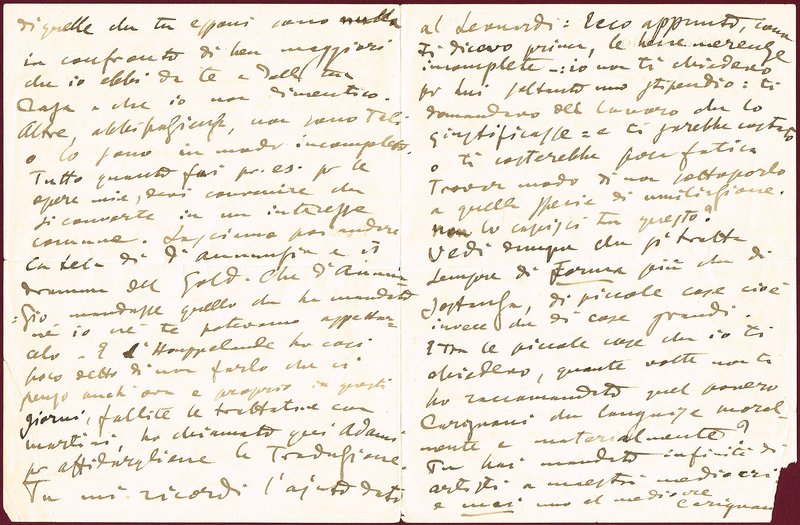 di quelle che tu esponi sono nulla
in confronto di ben maggiori
che io ebbi da te e dalla tua
Casa e che io non dimentico.
Altre, abbi pazienza, non sono tali
o lo sono in modo incompleto.
Tutto quanto fai p. es. per le
opere mie, devi convenire che
si converte in un interesse
comune. Lasciamo poi andare
la tela di d'Annunzio e il
dramma del Gold. Che d'Annun-
zio mandasse quello che ha mandato
nè io nè te potevamo aspettar-
celo. E l'Houppelande ho così
poco detto di non farlo che ci
penso anch'ora e proprio in questi
giorni, fallite le trattative con
Martini, ho chiamato qui Adami
per affidargliene la traduzione.
Tu mi ricordi l'ajuto dato
al Leonardi: Ecco appunto, come
ti dicevo prima, le benemerenze
incomplete: io non ti chiedevo
per lui soltanto uno stipendio: ti
domandavo del lavoro che lo
giustificasse e ti sarebbe costato
o ti costerebbe poca fatica
trovar modo di non sottoporlo
a quella specie di umiliazione.
non lo capisci tu questo?
Vedi dunque che si tratta
sempre di forma più che di
sostanza, di piccole cose cioè
invece che di cose grandi.
E tra le piccole cose che io ti
chiedevo, quante volte non ti
ho raccomandato quel povero
Carignani che languisce moral-
mente e materialmente?
Tu hai mandato infiniti di
artisti a maestri mediocri
e mai uno al mediocre
Carignani